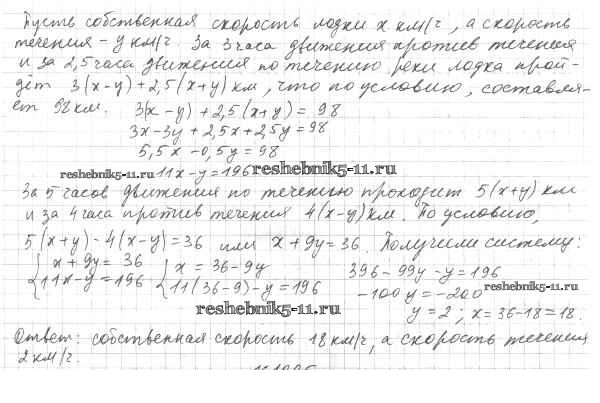 Пусть собственная скорость лодки x км/ч, а скорость
течения - y км/ч. За 3 часа движения против течения
и за 2,5 часа движения по течению реки лодка прой-
дёт 3(x-y)+2,5(x+y) км, что по условию, составля-
ет 98 км. 3(x-y)+2,5(x+y)=98
3x-3y+2,5x+2,5y=98
5,5x-0,5y=98
reshebnik5-11.ru 11x-y=196 reshebnik5-11.ru
За 5 часов движения по течению проходит 5(x+y) км
и за 4 часа против течения 4(x-y) км. По условию,
5(x+y)-4(x-y)=36 или x+9y=36. Получим систему:
{x+9y=36 {x=36-9y 396-99y-y=196
{11x-y=196 {11(36-9)-y=196 -100y=-200 reshebnik5-11.ru
reshebnik5-11.ru y=2; x=36-18=18.
Ответ: собственная скорость 18 км/ч, а скорость течения
2 км/ч.